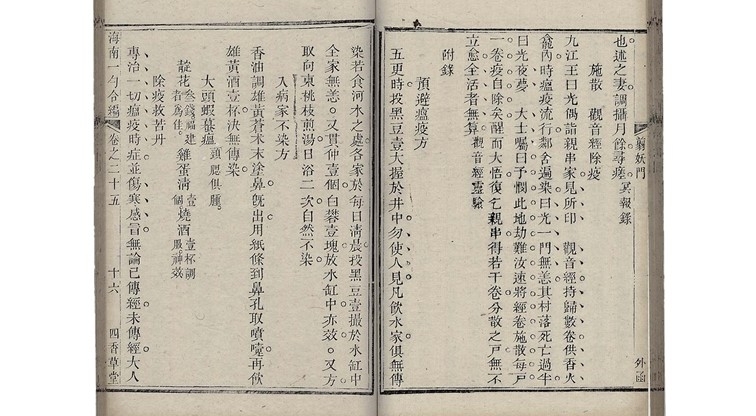 翦妖門
外函
也述之妻調攝月餘尋瘥冥報錄
施散 觀音經除疫
九江王曰光偶詣親串家見所印 觀音經持歸數卷供香火
龕內時瘟疫流行鄰舍遍染曰光一門無恙其村落死亡過半
曰光夜夢 大士囑曰予憫此地劫難汝速將經卷施散每戶
一卷疫自除矣醒而大悟復乞親串得若干卷分散之戶無不
立愈全活者無算觀音經靈驗
附錄
預避瘟疫方
五更時投黑豆壹大握於井中勿使人見凡飲水家俱無傳
染若食河水之處各家於每日清晨投黑豆壹撮於水缸中
全家無恙又貫仲壹個白礬壹塊放水缸中亦效又方
取向東桃枝煎湯日浴二次自然不染
入病家不染方
香油調雄黃蒼朮末塗鼻既出用紙條到鼻孔取噴嚏再飲
雄黃酒壹杯決無傳染
大頭蝦蟇瘟頭腮俱腫
靛花叁錢福建者為佳雞蛋清壹個燒酒壹杯調服神效
除疫救苦丹
專治一切瘟疫時症並傷寒感冒無論已傳經未傳經大人
海南一勺合編
卷之二十五
十六
四香草堂